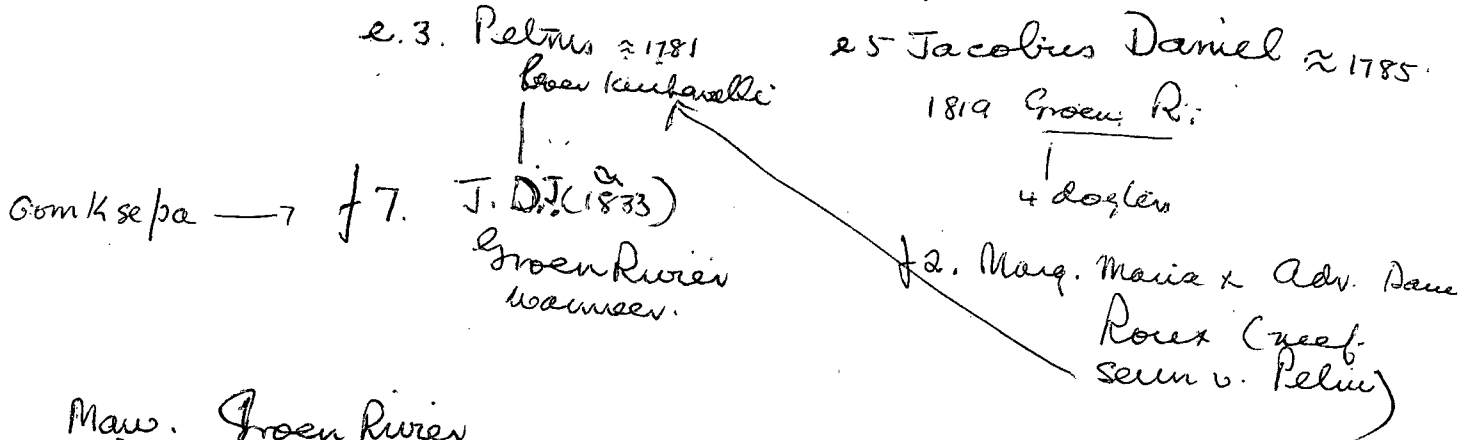 e.3. Petrus ≈ 1781
boer
e5 Jacobus Daniel ≈ 1785.
1819 Groen R.
4 dogters
Oom Ksepa → f7. J.D.J. (≈1833)
Groen Rivier
wanneer.
f2. Marg. Maria x Adv. Dawe
Roux (neef-
seun v. Petrus)
Maw. Groen Rivier